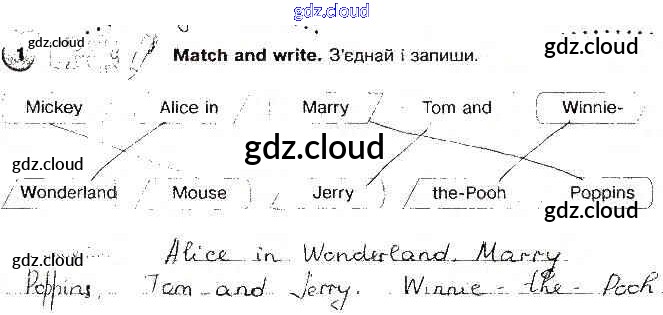 gdz.cloud
1 gdz.cloud Match and write. З'єднай і запиши. gdz.cloud
Mickey Alice in Marry Tom and Winnie-
gdz.cloud gdz.cloud
Wonderland Mouse Jerry the-Pooh Poppins
gdz.cloud
Alice in Wonderland. Marry
gdz.cloud
Poppins, Tom and Jerry. Winnie-the-Pooh.